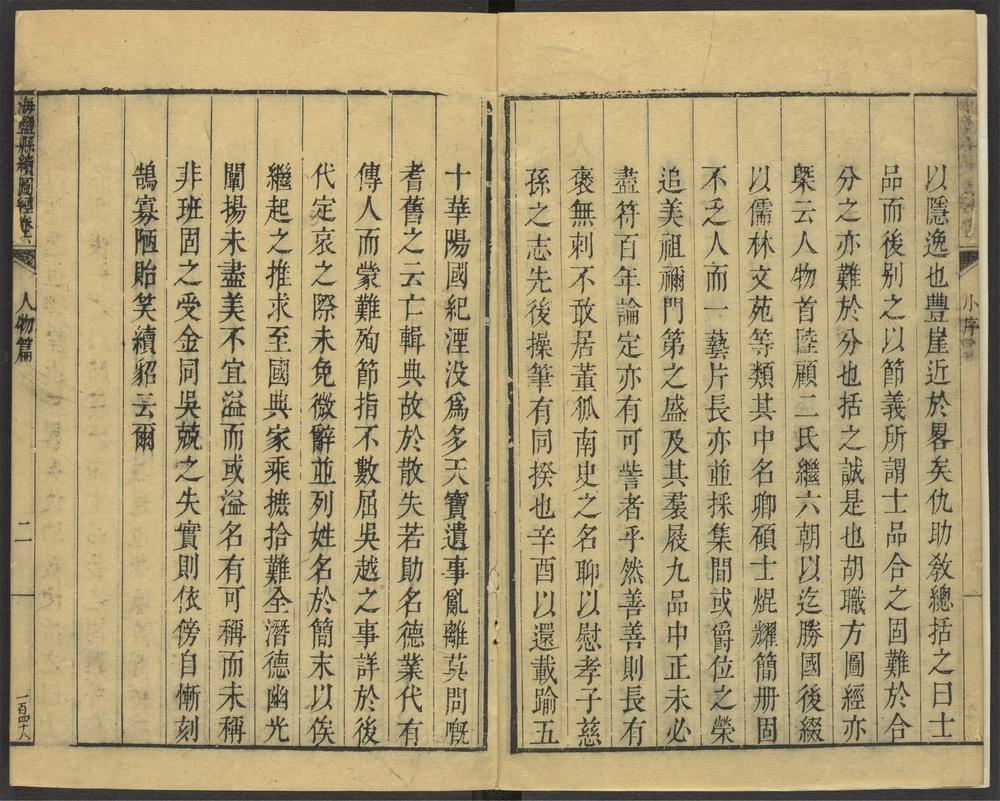 以隱逸也豐崖近於畧矣仇助敎總括之曰士
品而後别之以節義所謂士品合之固難於合
分之亦難於分也括之誠是也胡職方圖經亦
槩云人物首陸顧二氏繼六朝以迄勝國後綴
以儒林文苑等類其中名卿碩士焜耀簡册固
不乏人而一藝片長亦並採集間或爵位之榮
追美祖禰門第之盛及其羣屐九品中正未必
盡符百年論定亦有可訾者乎然善善則長有
褒無刺不敢居董狐南史之名聊以慰孝子慈
孫之志先後操筆有同揆也辛酉以還載踰五
小序
一
十華陽國紀湮没爲多天寶遺事亂離莫問嘅
耆舊之云亡輯典故於散失若勛名德業代有
傳人而蒙難殉節指不數屈吳越之事詳於後
代定哀之際未免微辭並列姓名於簡末以俟
繼起之推求至國典家乘摭拾難全潛德幽光
闡揚未盡美不宜溢而或溢名有可稱而未稱
非班固之受金同吳兢之失實則依傍自慚刻
鵠寡陋貽笑續貂云爾
海鹽縣續圖經卷六
人物篇
二
一百四十八